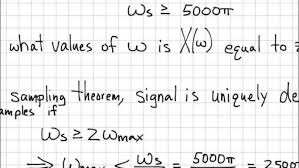 ωs ≥ 5000π
what values of ω is X(ω) equal to
Sampling theorem, signal is uniquely de
amples if
ωs ≥ 2ωmax
→ ωmax < ωs/2 = 5000π/2 = 2500